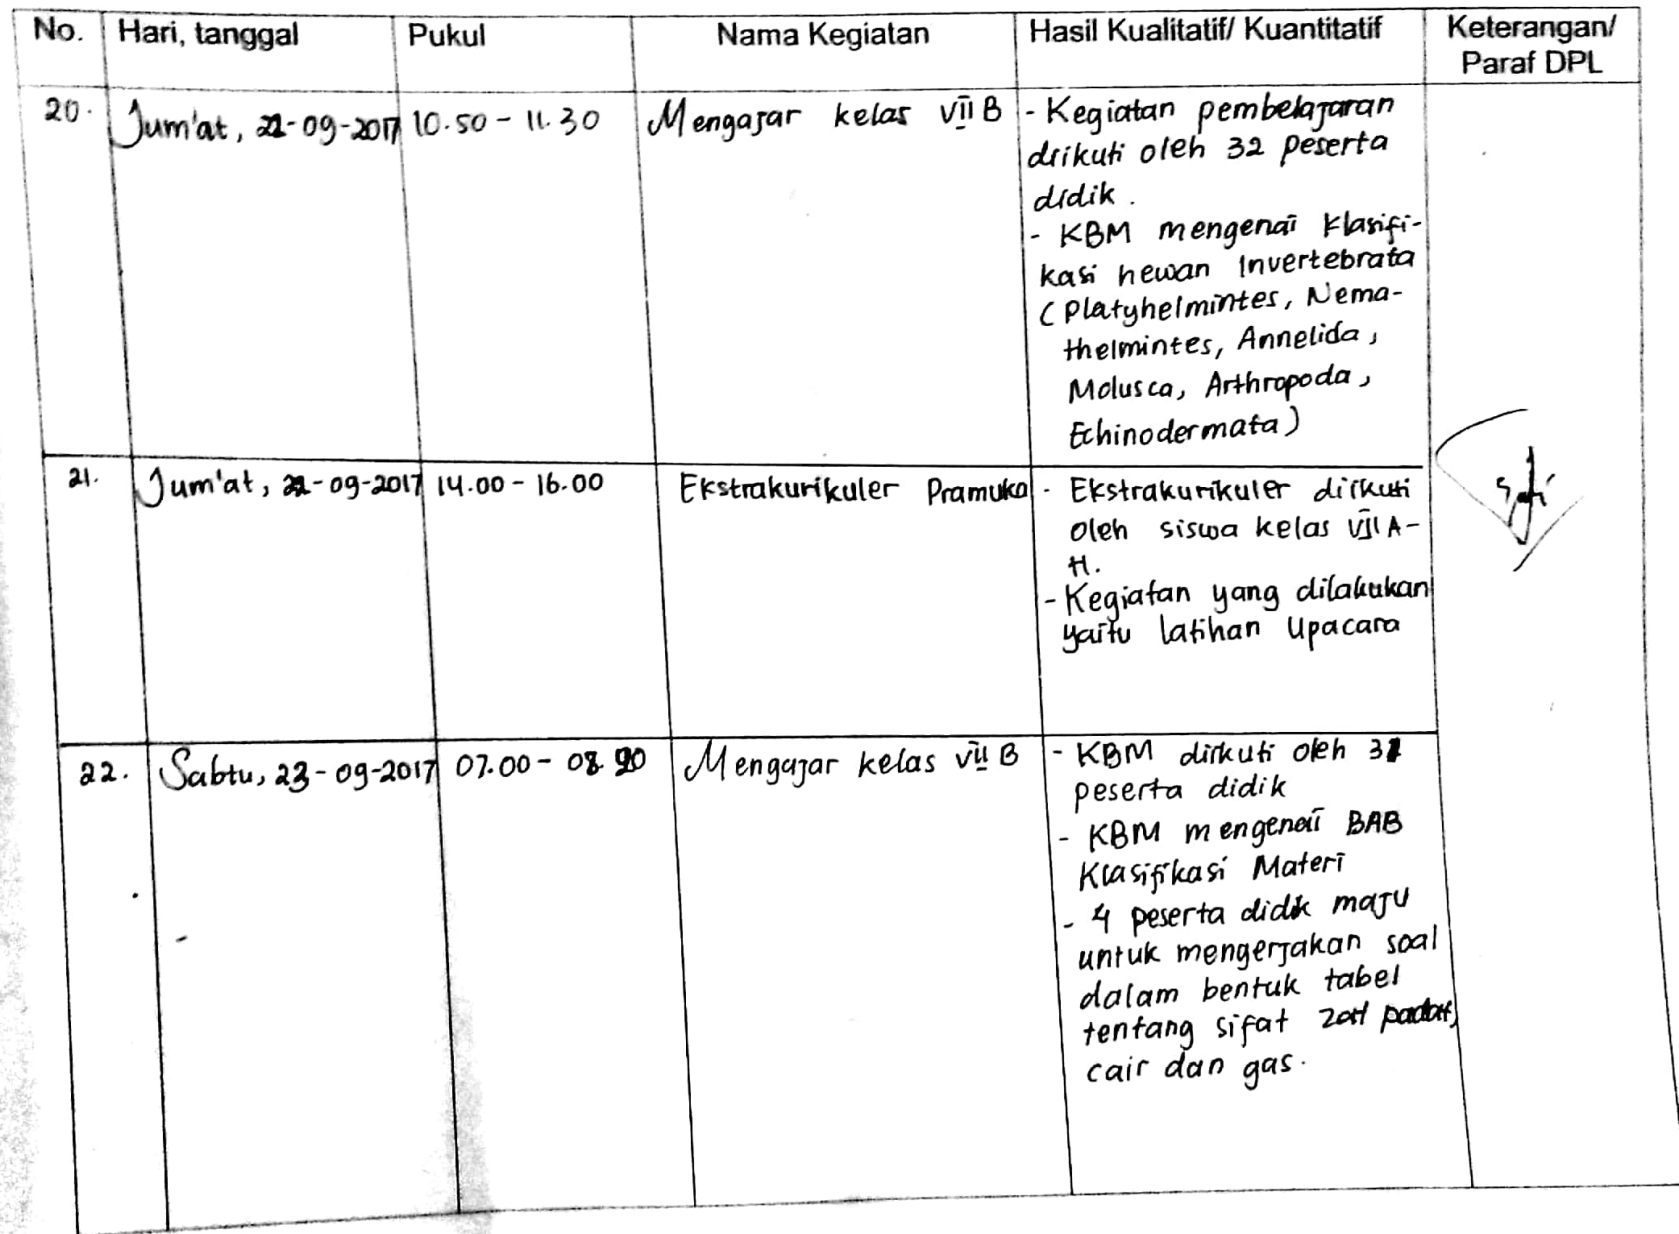 No. Hari, tanggal Pukul Nama Kegiatan Hasil Kualitatif/ Kuantitatif Keterangan/
Paraf DPL
20. Jum'at, 22-09-2017 10.50 - 11.30 Mengajar kelas VII B - Kegiatan pembelajaran
diikuti oleh 32 peserta
didik.
- KBM mengenai Klasifi-
kasi hewan Invertebrata
(Platyhelmintes, Nema-
thelmintes, Annelida,
Molusca, Arthropoda,
Echinodermata)
21. Jum'at, 22-09-2017 14.00 - 16.00 Ekstrakurikuler Pramuka - Ekstrakurikuler diikuti
oleh siswa kelas VII A-
H.
- Kegiatan yang dilakukan
yaitu latihan Upacara
22. Sabtu, 23-09-2017 07.00 - Mengajar kelas VII B - KBM diikuti oleh
peserta didik
- KBM mengenai BAB
Klasifikasi Materi
- 4 peserta didik maju
untuk mengerjakan soal
dalam bentuk tabel
tentang sifat zat padat,
cair dan gas.